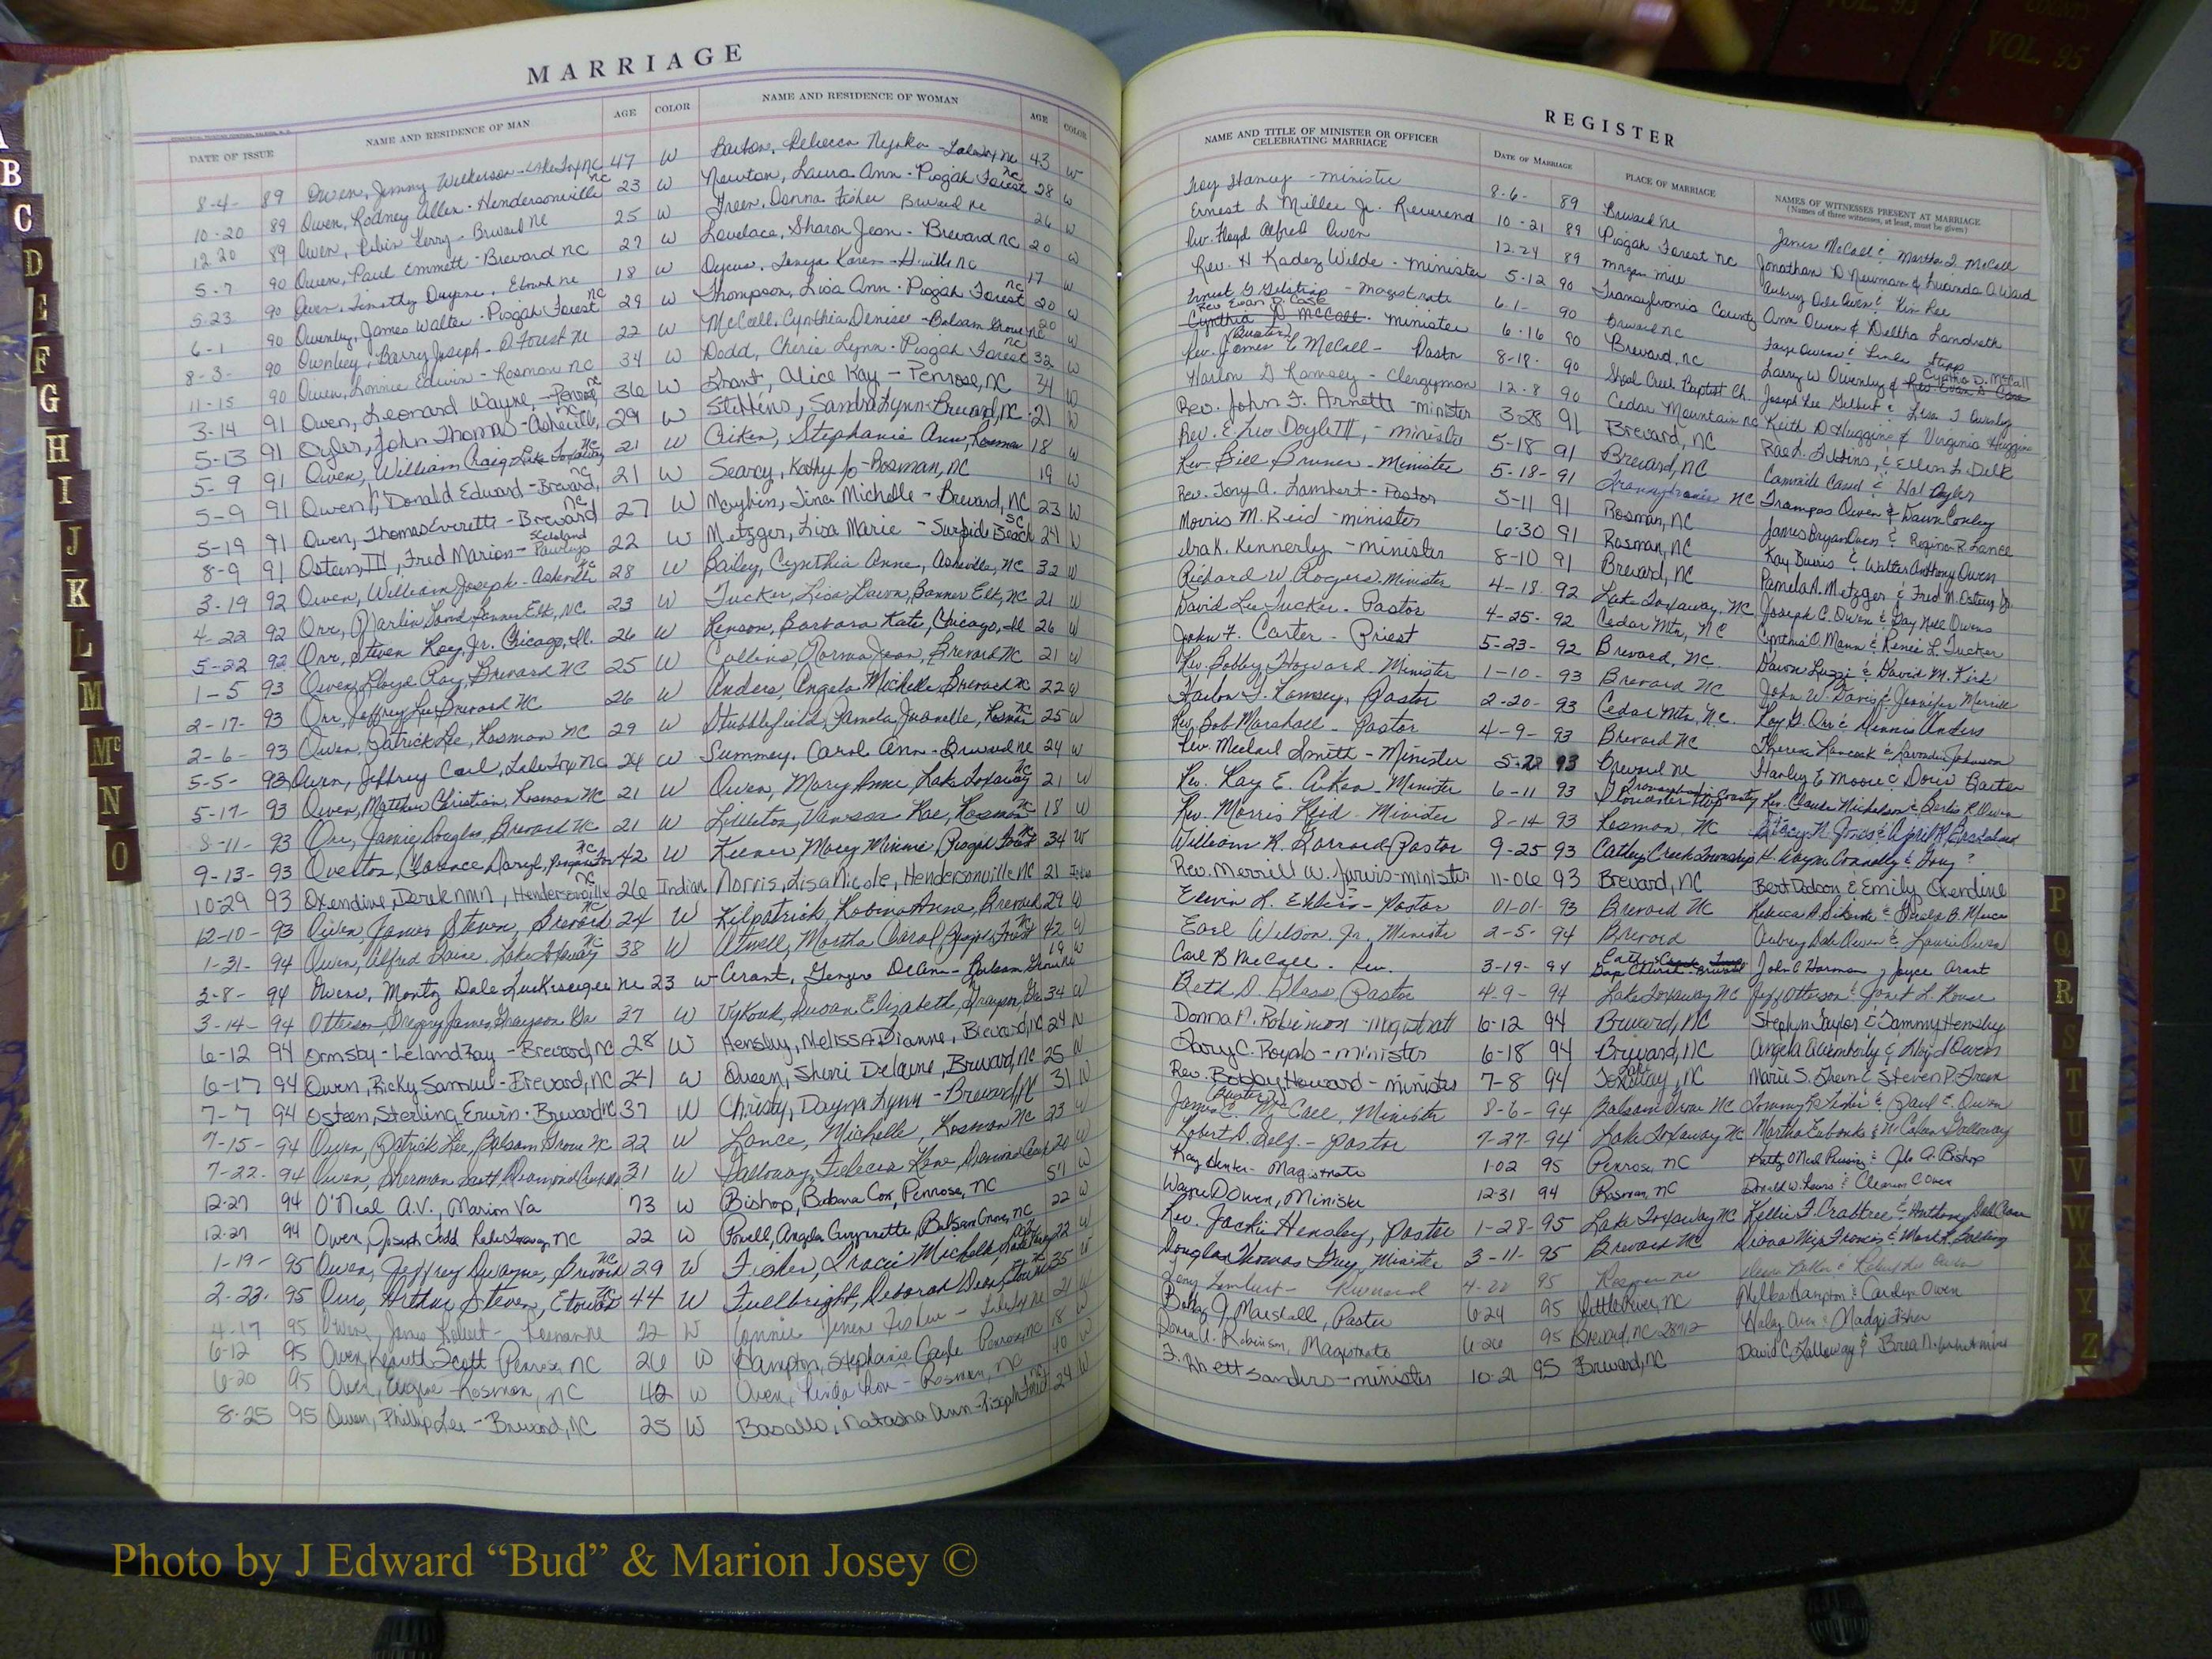 MARRIAGE
DATE OF ISSUE NAME AND RESIDENCE OF MAN AGE COLOR NAME AND RESIDENCE OF WOMAN AGE COLOR
8-4- 89 Owen, Jimmy Wilkerson - NC 47 W Rebecca 43 W
10-20 89 Owen, Rodney Allen - Hendersonville NC 23 W Newton, Laura Ann - Pisgah Forest NC 28 W
12 20 89 Owen, Kelvin Kerry - Brevard NC 25 W Green, Donna Fisher Brevard NC 26 W
5-7 90 Owen, Paul Emmett - Brevard NC 27 W Lovelace, Sharon Jean - Brevard NC 20 W
5-23 90 Owen, Timothy Dwayne, NC 18 W Tonya Karen - H'ville NC 17 W
6-1 90 Ownley, James Walter - Pisgah Forest NC 29 W Thompson, Lisa Ann - Pisgah Forest NC 20 W
8-3- 90 Ownley, Barry Joseph - P Forest NC 22 W McCall, Cynthia Denise - Balsam Grove NC 20 W
11-15 90 Owen, Lonnie Edwin - Rosman NC 34 W Dodd, Cherie Lynn - Pisgah Forest NC 32 W
3-14 91 Owen, Leonard Wayne, - Penrose NC 36 W Grant, Alice Kay - Penrose, NC 34 W
5-13 91 Oyler, John Thomas - Asheville, NC 29 W Stebbins, Sandra Lynn - Brevard, NC - 21 W
5-9 91 Owen, William Craig - Lake Toxaway NC 21 W Aiken, Stephanie Ann, Rosman 18 W
5-9 91 Owen, Donald Edward - Brevard, NC 21 W Searcy, Kathy Jo - Rosman, NC 19 W
5-19 91 Owen, Thomas Everette - Brevard NC 27 W Maybin, Tina Michelle - Brevard, NC 23 W
8-9 91 Osteen, III, Fred Marion - 22 W Metzger, Lisa Marie - Surfside Beach SC 24 W
3-19 92 Owen, William Joseph - Asheville NC 28 W Bailey, Cynthia Anne, Asheville, NC 32 W
4-22 92 Orr, Marlin Banner Elk, NC 23 W Tucker, Lisa Dawn, Banner Elk, NC 21 W
5-22 92 Orr, Steven Ray, Jr. Chicago, Il. 26 W Henson, Barbara Kate, Chicago, Il 26 W
1-5 93 Owen, Lloyd Ray, Brevard NC 25 W Collins, Norma Jean, Brevard NC 21 W
2-17- 93 Orr, Jeffrey Lee Brevard NC 26 W Anders, Angela Michelle, Brevard NC 22 W
2-6- 93 Owen, Patrick Lee, Rosman NC 29 W Stubblefield, Pamela Juanelle, Rosman NC 25 W
5-5- 93 Owen, Jeffrey Carl, Lake Tox NC 24 W Summey, Carol Ann - Brevard NC 24 W
5-17- 93 Owen, Matthew Christian, Rosman NC 21 W Owen, Mary Anne Lake Toxaway NC 21 W
8-11- 93 Orr, Jamie Douglas, Brevard NC 21 W Littleton, Vanessa Rae, Rosman NC 18 W
9-13- 93 Overton, Clarence Daryl, NC 42 W Keener Mary Minnie Pisgah Forest NC 34 W
10-29 93 Oxendine, Derek NMN, Hendersonville NC 26 Indian Norris, Lisa Nicole, Hendersonville NC 21
12-10- 93 Owen, James Steven, Brevard NC 24 W Kilpatrick, Robin Anne, Brevard 29 W
1-31- 94 Owen, Alfred Laine, Lake Toxaway NC 38 W Atwell, Martha Carol Pisgah Forest NC 42 W
3-8- 94 Owen, Monty Dale Tuckaseegee NC 23 W Arant, Ginger DeAnn - Balsam Grove NC 19 W
3-14- 94 Otterson Gregory James, Grayson Ga 37 W Vykouk, Susan Elizabeth, Grayson, Ga 34 W
6-12 94 Ormsby - Leland Fay - Brevard, NC 28 W Hensley, Melissa Dianne, Brevard, NC 24 W
6-17 94 Owen, Ricky Samuel - Brevard, NC 24 W Queen, Sheri Delaine, Brevard, NC 25 W
7-7 94 Osteen, Sterling Erwin - Brevard NC 37 W Christy, Dayna Lynn - Brevard NC 31 W
7-15- 94 Owen, Patrick Lee, Balsam Grove NC 22 W Lance, Michelle, Rosman NC 23 W
7-22- 94 Owen, Sherman Scott, 31 W Galloway, Felecia 20 W
12-27 94 O'Neal A.V., Marion Va 73 W Bishop, Barbara Cox, Penrose, NC 57 W
12-27 94 Owen, Joseph Todd Lake Toxaway NC 22 W Powell, Angela Gwynnette, Balsam Grove, NC 22 W
1-19- 95 Owen, Jeffrey Dwayne, Brevard NC 29 W Fisher, Tracie Michelle, Lake Toxaway NC 22 W
2-23- 95 Arthur Steven, Etowah NC 44 W Fullbright, Deborah 35 W
4-17 95 Owen, James Robert - Rosman NC 22 W Connie Jenene Fisher - 21 W
6-12 95 Owen, Kenneth Scott Penrose, NC 26 W Hampton, Stephanie Gayle Penrose, NC 18 W
6-20 95 Owen, Eugene Rosman, NC 42 W Owen, Linda Lou - Rosman, NC 40 W
8-25 95 Owen, Phillip Lee - Brevard, NC 25 W Basallo, Natasha Ann - Pisgah Forest NC 24 W
REGISTER
NAME AND TITLE OF MINISTER OR OFFICER CELEBRATING MARRIAGE DATE OF MARRIAGE PLACE OF MARRIAGE NAMES OF WITNESSES PRESENT AT MARRIAGE
(Names of three witnesses, at least, must be given)
Troy Stancy - minister 8-6- 89 Brevard NC James McCall & Martha McCall
Ernest L Miller Jr. Reverend 10-21 89 Pisgah Forest NC Jonathan D Newman & Luanda A Ward
Rev. Floyd Alfred Owen 12-24 89 Morgan Mill Aubrey Dale Owen & Kim Rae
Rev. H Kadez Wilde - Minister 5-12 90 Transylvania County Ann Owen & Landreth
Ernest G Gilstrap - Magistrate 6-1- 90 Brevard NC Faye Owen & Linda
Rev Evan D. Case
Cynthia D McCall - Minister 6-16 90 Brevard, NC Larry W Owenby & Cynthia D. McCall
Rev. James (Buster) E McCall - Pastor 8-18- 90 Shoal Creek Baptist Ch. Joseph Lee Gilbert & Lisa T Owenby
Harlon G Ramsey - Clergyman 12-8 90 Cedar Mountain NC Keith D Huggins & Virginia Huggins
Rev. John F. Arnett - minister 3-28 91 Brevard, NC Rae L. Stebbins, & Ellen L. Delk
Rev. E. Leo Doylett, - minister 5-18 91 Brevard, NC Cammile Cassel & Hal Oyler
Rev Bill Bruner - Minister 5-18- 91 Transylvania NC Trampas Owen & Dawn Conley
Rev. Tony A. Lambert - Pastor 5-11 91 Rosman, NC James Bryan Owen & Regina R. Lance
Morris M. Reid - minister 6-30 91 Rosman, NC Kay Burris & Walter Anthony Owen
Ira K. Kennerly - minister 8-10 91 Brevard, NC Pamela A. Metzger & Fred M. Osteen Jr.
Richard W Rogers Minister 4-18 92 Lake Toxaway, NC Joseph C. Owen & Nell Owens
David Lee Tucker - Pastor 4-25- 92 Cedar Mtn, NC Cynthia O. Mann & Renee L. Tucker
John F. Carter - Priest 5-23- 92 Brevard, NC Dawn & David M. Kird
Rev. Bobby Howard. Minister 1-10- 93 Brevard NC John W. Davis & Jennifer Merrill
Harlon G. Ramsey, Pastor 2-20- 93 Cedar Mtn, N.C. Roy G. Orr & Dennis Anders
Rev. Bob Marshall - Pastor 4-9- 93 Brevard NC Theresa Hancock & Johnson
Rev. Michael Smith - Minister 5-22 93 Brevard NC Harley E Moore & Doris Barton
Rev. Ray E. Aiken - Minister 6-11 93 Gloucester Twp Transylvania County Rev. Claude Nicholson & Bertie R. Owen
Rev. Morris Reid - Minister 8-14 93 Rosman, NC Stacy N. Jones &
William R. Garrard Pastor 9-25 93 Catheys Creek Township H. Wayne Connolly & Guy ?
Rev. Merrill W. Jarvis - minister 11-06 93 Brevard, NC Bert Dodson & Emily Oxendine
Ervin L. - Pastor 01-01- 93 Brevard NC Rebecca A.
Earl Wilson, Jr, Minister 2-5- 94 Brevard Aubrey Dale Owen & Laurie Owen
Carl B McCall - Rev. 3-19- 94 John C Harmon, Joyce Arant
Beth D. Glass Pastor 4-9- 94 Lake Toxaway NC Jeff Otterson & Janet L. House
Donna A. Robinson - Magistrate 6-12 94 Brevard, NC Stephen Taylor & Tammy Hensley
Gary C. Royals - minister 6-18 94 Brevard, NC Angela & Owen
Rev. Bobby Howard - minister 7-8 94 Lake Toxaway, NC Marie S. Green & Steven P. Green
James (Buster) E. McCall, Minister 8-6- 94 Balsam Grove NC Tommy & Paul E. Owen
Robert A. Self - Pastor 7-27- 94 Lake Toxaway NC Martha Eubanks & Galloway
Ray Hunter - Magistrate 1-02 95 Penrose, NC Patty O'Neal & A. Bishop
Wayne D Owen, Minister 12-31 94 Rosman, NC Donald W. & Clearsie C Owen
Rev. Jackie Hensley, Pastor 1-28-95 Lake Toxaway NC Kellie F. Crabtree & Anthony Dale Owen
Douglas Thomas Guy, Minister 3-11- 95 Brevard NC
Tony Lambert - Reverend 4-22 95 Rosman NC Owen
Bobby G. Marshall, Pastor 6-24 95 Little River, NC Melba Hampton & Carolyn Owen
Donna A. Robinson, Magistrate 6-26 95 Brevard, NC 28712 Haley Owen & Madge Fisher
F. Rhett Sanders - minister 10-21 95 Brevard, NC David C. Galloway & Brea N.
B
C
D
E
F
G
H
I
J
K
L
M
Mc
N
O
P
Q
R
S
T
U
V
W
X
Y
Z
VOL. 95
Photo by J Edward “Bud” & Marion Josey ©